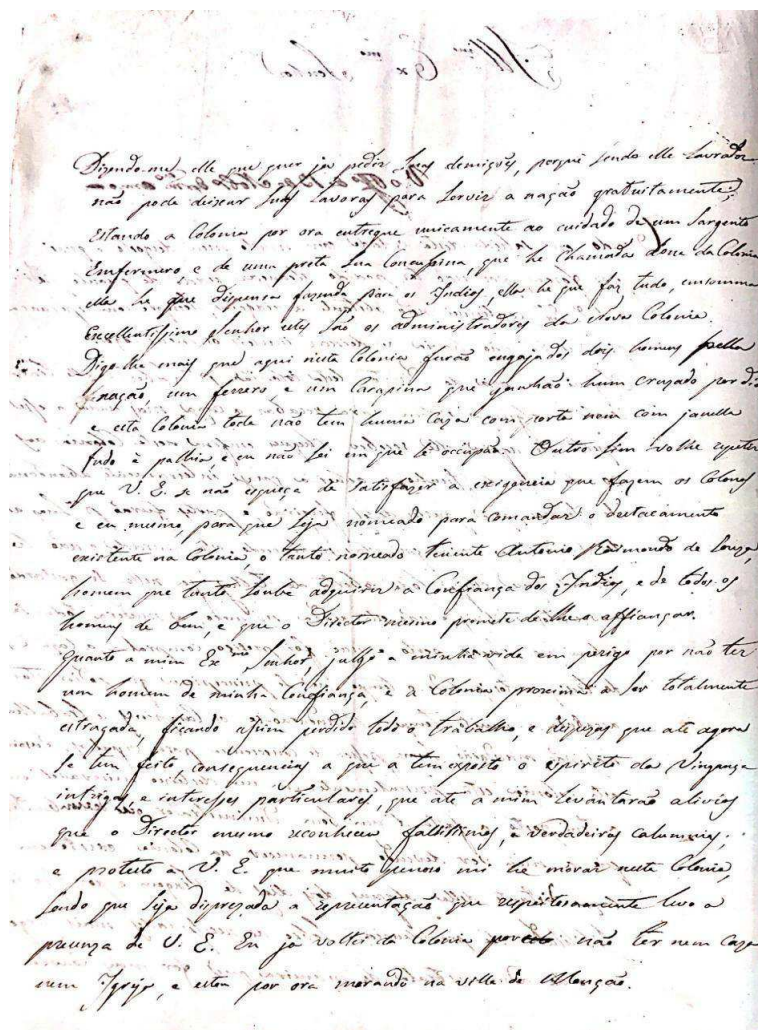 Dizendo-me elle que quer ja pedir suas demições, porque sendo elle Lavrador
não pode deixar suas Lavoras para servir a nação gratuitamente;
Estando a Colonia por ora entregue unicamente ao cuidado de um Sargento
Enfermero e de uma preta sua Concubina, que he Chamada dona da Colonia
ella he que dispensa fazenda para os Indios, ella he que faz tudo, emsomma
Excellentissimo Senhor estes são os administradores da Nova Colonia.
Digo-lhe mais que aqui nesta Colonia furão engajados dois homens pella
nação, um ferrero, e um Carapina que ganhão hum cruzado por dia
e esta Colonia toda não tem huma Caza com porta nem com janella
tudo è palhia, e eu não sei em que se occupão. Outro sim volhe repeter
que V. E. se não esqueça de satisfazer a exigencia que fazem os Colonos
e eu mesmo, para que seja nomeado para comandar o destacamento
existente na Colonia, o tanto nomeado tenente Antonio Raimondo de Souza,
homem que tanto soube adquirir a Confiança dos Indios, e de todos os
homens de bem, e que o Director mesmo promete de lhe o affiançar.
Quanto a mim Exmo Senhor, julgo a minha vida em perigo por não ter
um homem de minha Confiança, e a Colonia proxima a ser totalmente
estragada, ficando assim perdido todo o trabalho, e despezas que até agora
se tem feito consequencias a que a tem exposto o espirito da Vingança
intrigas, e interesses particulares, que até a mim levantarão alivios
que o Director mesmo reconheceu falsissimos, e verdadeiras calumnias;
e protesto a V. E. que muito penoso mi he morar nesta Colonia,
sendo que seja disprezada a representação que respeitosamente levo a
prezença de V. E. Eu ja voltei da Colonia por não ter nem Caza
nem Igreja, e estou por ora morando na villa de Monção.